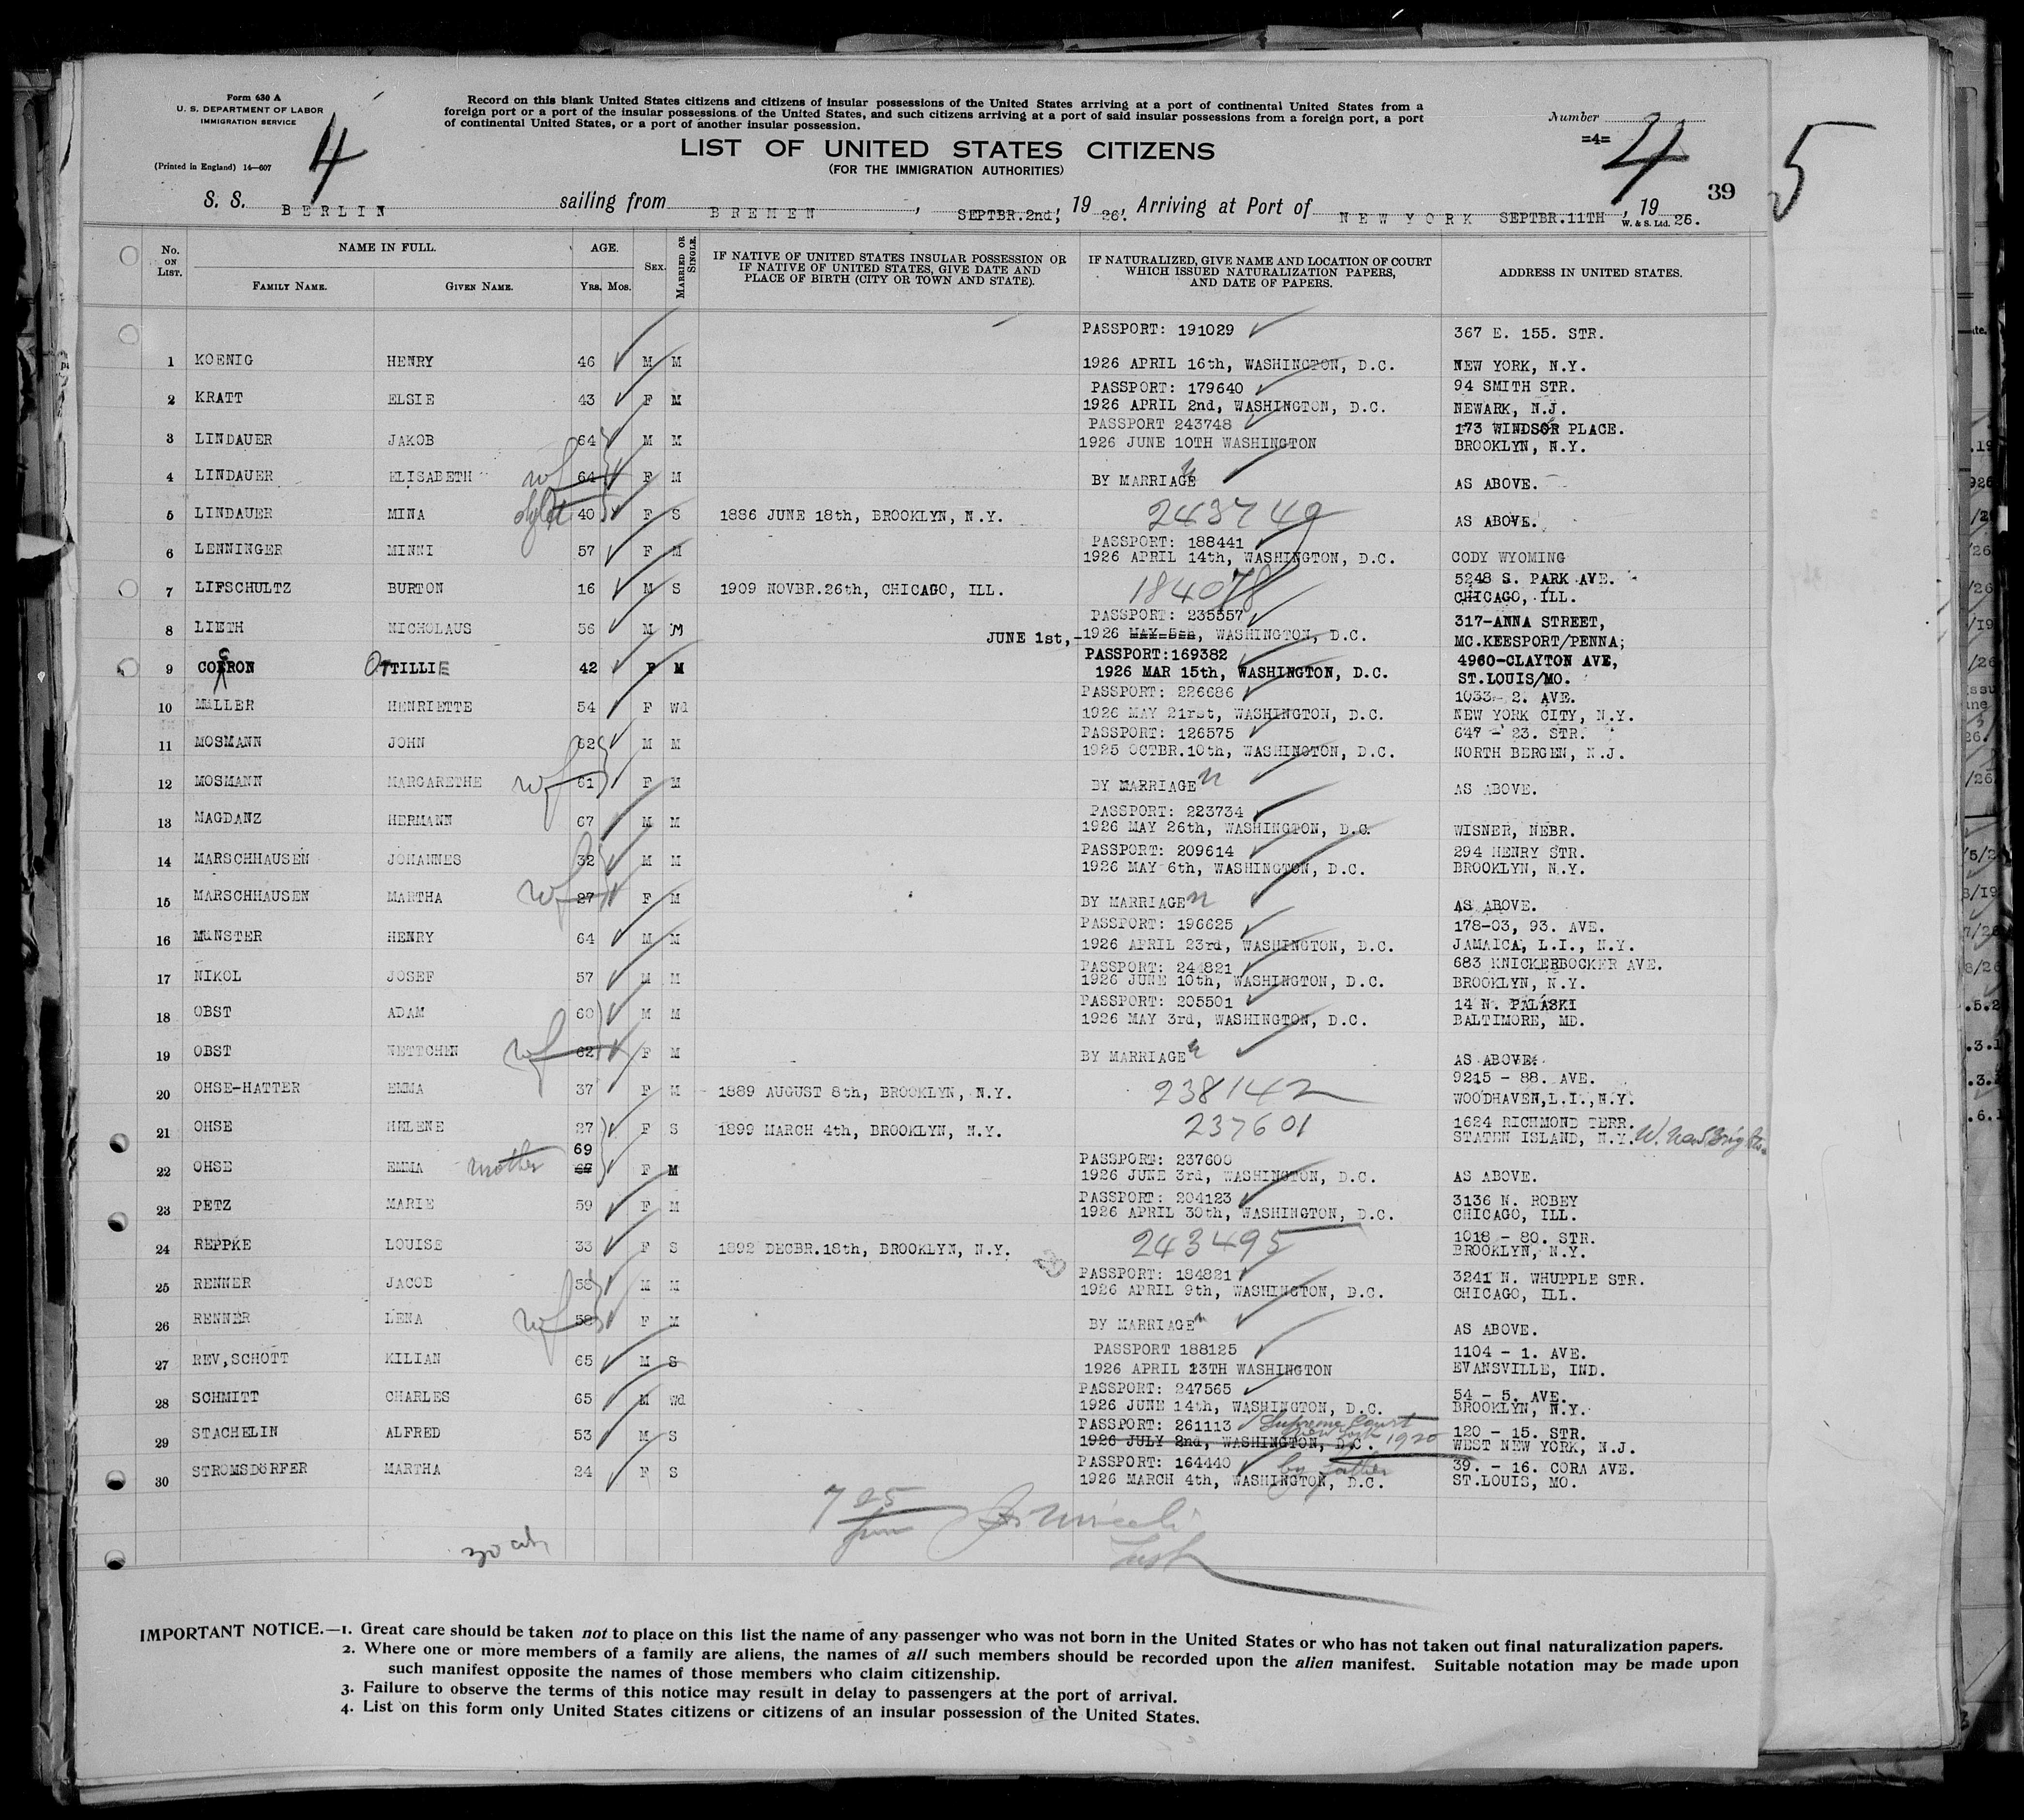 Form 630 A
U. S. DEPARTMENT OF LABOR
IMMIGRATION SERVICE
(Printed in England) 14—607
4
Record on this blank United States citizens and citizens of insular possessions of the United States arriving at a port of continental United States from a
foreign port or a port of the insular possessions of the United States, and such citizens arriving at a port of said insular possessions from a foreign port, a port
of continental United States, or a port of another insular possession.
LIST OF UNITED STATES CITIZENS
(FOR THE IMMIGRATION AUTHORITIES)
Number
=4=
4
39
5
S. S. BERLIN sailing from BREMEN, SEPTBR.2nd, 1926. Arriving at Port of NEW YORK SEPTBR.11TH, 1926.
W. & S. Ltd.
No. ON LIST. NAME IN FULL. AGE. SEX. MARRIED OR SINGLE. IF NATIVE OF UNITED STATES INSULAR POSSESSION OR IF NATIVE OF UNITED STATES, GIVE DATE AND PLACE OF BIRTH (CITY OR TOWN AND STATE). IF NATURALIZED, GIVE NAME AND LOCATION OF COURT WHICH ISSUED NATURALIZATION PAPERS, AND DATE OF PAPERS. ADDRESS IN UNITED STATES.
FAMILY NAME. GIVEN NAME. YRS. MOS.
PASSPORT: 191029 367 E. 155. STR.
1 KOENIG HENRY 46 M M 1926 APRIL 16th, WASHINGTON, D.C. NEW YORK, N.Y.
PASSPORT: 179640 94 SMITH STR.
2 KRATT ELSIE 43 F M 1926 APRIL 2nd, WASHINGTON, D.C. NEWARK, N.J.
PASSPORT 243748 173 WINDSOR PLACE.
3 LINDAUER JAKOB 64 M M 1926 JUNE 10TH WASHINGTON BROOKLYN, N.Y.
4 LINDAUER ELISABETH wf 64 F M BY MARRIAGE AS ABOVE.
5 LINDAUER MINA 40 F S 1886 JUNE 18th, BROOKLYN, N.Y. 243749 AS ABOVE.
PASSPORT: 188441
6 LENNINGER MINNI 57 F M 1926 APRIL 14th, WASHINGTON, D.C. CODY WYOMING
5248 S. PARK AVE.
7 LIFSCHULTZ BURTON 16 M S 1909 NOVBR.26th, CHICAGO, ILL. 184078 CHICAGO, ILL.
PASSPORT: 235557 317-ANNA STREET,
8 LIETH NICHOLAUS 56 M M JUNE 1st,-1926 WASHINGTON, D.C. MC.KEESPORT/PENNA;
PASSPORT:169382 4960-CLAYTON AVE,
9 OTTILLIE 42 F M 1926 MAR 15th, WASHINGTON, D.C. ST.LOUIS/MO.
PASSPORT: 226686 1033- 2. AVE.
10 MüLLER HENRIETTE 54 F Wd 1926 MAY 21rst, WASHINGTON, D.C. NEW YORK CITY, N.Y.
PASSPORT: 126575 647 - 23. STR.
11 MOSMANN JOHN 62 M M 1925 OCTBR.10th, WASHINGTON, D.C. NORTH BERGEN, N.J.
12 MOSMANN MARGARETHE wf 61 F M BY MARRIAGE AS ABOVE.
PASSPORT: 223734
13 MAGDANZ HERMANN 67 M M 1926 MAY 26th, WASHINGTON, D.C. WISNER, NEBR.
PASSPORT: 209614 294 HENRY STR.
14 MARSCHHAUSEN JOHANNES 32 M M 1926 MAY 6th, WASHINGTON, D.C. BROOKLYN, N.Y.
15 MARSCHHAUSEN MARTHA wf 27 F M BY MARRIAGE AS ABOVE.
PASSPORT: 196625 178-03, 93. AVE.
16 MüNSTER HENRY 64 M M 1926 APRIL 23rd, WASHINGTON, D.C. JAMAICA, L.I., N.Y.
PASSPORT: 244821 683 KNICKERBOCKER AVE.
17 NIKOL JOSEF 57 M M 1926 JUNE 10th, WASHINGTON, D.C. BROOKLYN, N.Y.
PASSPORT: 205501 14 N. PALASKI
18 OBST ADAM 60 M M 1926 MAY 3rd, WASHINGTON, D.C. BALTIMORE, MD.
19 OBST NETTCHEN wf 62 F M BY MARRIAGE AS ABOVE.
9215 - 88. AVE.
20 OHSE-HATTER EMMA 37 F M 1889 AUGUST 8th, BROOKLYN, N.Y. 238142 WOODHAVEN,L.I.,N.Y.
1624 RICHMOND TERR.
21 OHSE HELENE 27 F S 1899 MARCH 4th, BROOKLYN, N.Y. 237601 STATEN ISLAND, N.Y.
PASSPORT: 237600
22 OHSE EMMA mother 69 F M 1926 JUNE 3rd, WASHINGTON, D.C. AS ABOVE.
PASSPORT: 204123 3136 N. ROBEY
23 PETZ MARIE 59 F M 1926 APRIL 30th, WASHINGTON, D.C. CHICAGO, ILL.
1018 - 80. STR.
24 REPPKE LOUISE 33 F S 1892 DECBR.18th, BROOKLYN, N.Y. 243495 BROOKLYN, N.Y.
PASSPORT: 184821 3241 N. WHUPPLE STR.
25 RENNER JACOB 58 M M 1926 APRIL 9th, WASHINGTON, D.C. CHICAGO, ILL.
26 RENNER LENA wf 58 F M BY MARRIAGE AS ABOVE.
PASSPORT 188125 1104 - 1. AVE.
27 REV,SCHOTT KILIAN 65 M S 1926 APRIL 13TH WASHINGTON EVANSVILLE, IND.
PASSPORT: 247565 54 - 5. AVE.
28 SCHMITT CHARLES 65 M Wd 1926 JUNE 14th, WASHINGTON, D.C. BROOKLYN, N.Y.
PASSPORT: 261113 Supreme Court New York 120 - 15. STR.
29 STACHELIN ALFRED 53 M S 1926 JULY 2nd, WASHINGTON, D.C. 1920 WEST NEW YORK, N.J.
PASSPORT: 164440 by father 39. - 16. CORA AVE.
30 STROMSDöRFER MARTHA 24 F S 1926 MARCH 4th, WASHINGTON, D.C. ST.LOUIS, MO.
IMPORTANT NOTICE.—1. Great care should be taken not to place on this list the name of any passenger who was not born in the United States or who has not taken out final naturalization papers.
2. Where one or more members of a family are aliens, the names of all such members should be recorded upon the alien manifest. Suitable notation may be made upon
such manifest opposite the names of those members who claim citizenship.
3. Failure to observe the terms of this notice may result in delay to passengers at the port of arrival.
4. List on this form only United States citizens or citizens of an insular possession of the United States.